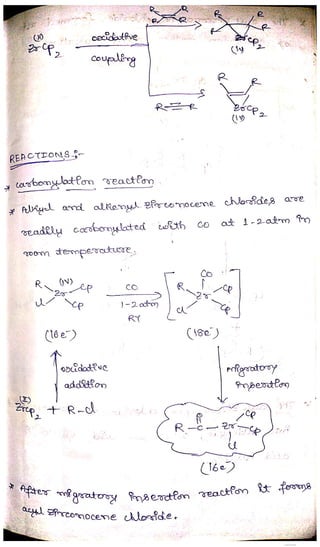 (II)
ZrCp2
oxidative
coupling
R R
R R
R R
R R
ZrCp2
(IV)
R R
R≡R
ZrCp2
(IV)
REACTIONS :-
* Carbonylation reaction
* Alkyl and alkenyl zirconocene chlorides are
readily carbonylated with CO at 1-2 atm in
room temperature.
R (IV) Cp
Zr
Cl Cp
CO
1-2 atm
RT
CO
R Cp
Zr
Cl Cp
(16e-) (18e-)
oxidative
addition
migratory
insertion
(II)
ZrCp2 + R-Cl
O
R-C-Zr-Cp
Cp
Cl
(16e-)
* After migratory insertion reaction it forms
acyl zirconocene chloride.